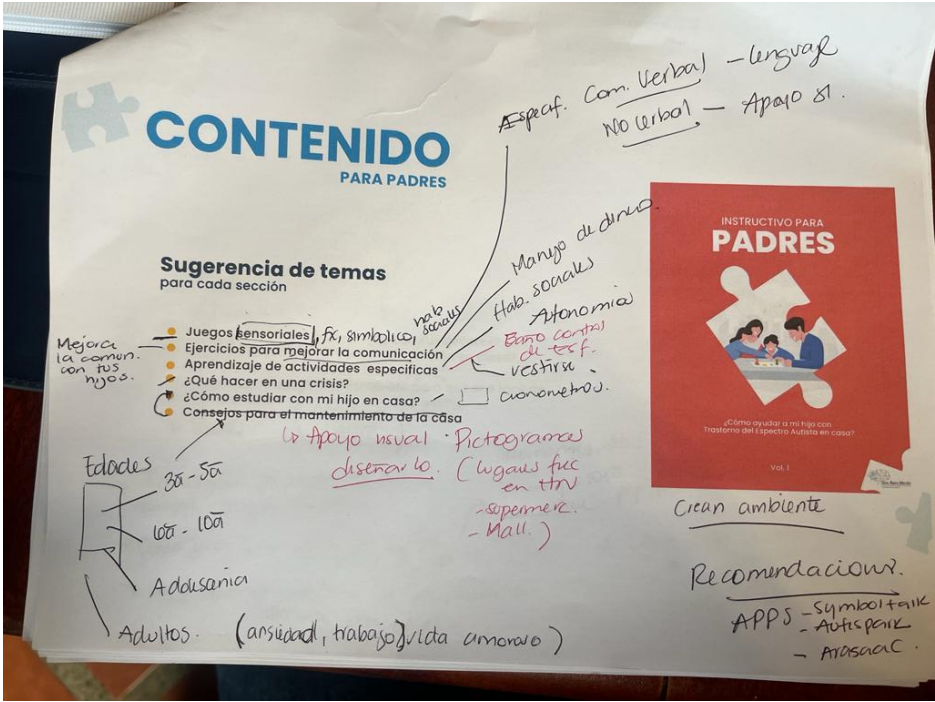 Especif. Com. Verbal – lenguaje
No verbal – Apoyo
CONTENIDO
PARA PADRES
Sugerencia de temas
para cada sección
Juegos sensoriales, fx, simbolico,
hab. sociales
Ejercicios para mejorar la comunicación
Aprendizaje de actividades específicas
¿Qué hacer en una crisis?
¿Cómo estudiar con mi hijo en casa?
Consejos para el mantenimiento de la casa
Mejora
la comun.
con tus
hijos.
Manejo de dinero.
Hab. sociales
Autonomia
Baño control
de esf.
vestirse
cronometros.
↳ Apoyo visual · Pictogramas
diseñarlo. (lugares frec
en HN
- supermerc.
- Mall. )
Edades
3a - 5a
6a - 10a
Adolesania
Adultos. (ansiedad, trabajo, vida amoroso)
INSTRUCTIVO PARA
PADRES
¿Cómo ayudar a mi hijo con
Trastorno del Espectro Autista en casa?
Vol. I
Crean ambiente
Recomendaciones.
APPS - Symboltalk
- Autispark
- Arasaac.